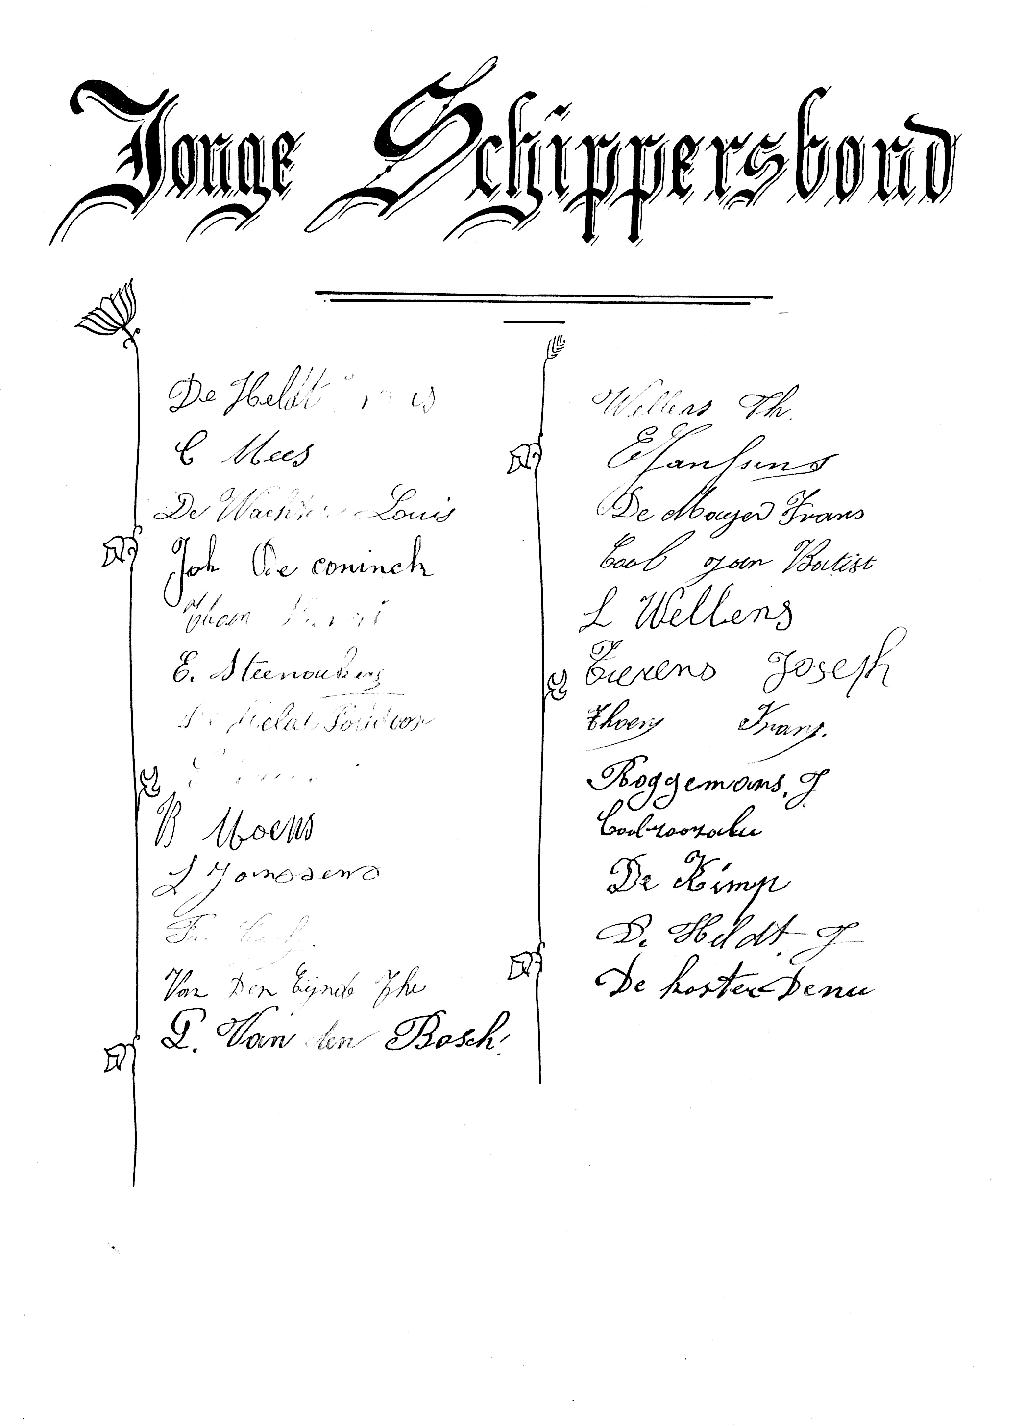 Jonge Schippersbond
De Heldt
C Mees
De Wachter Louis
Joh De coninck
E. Steenouberg
De Heldt Isidoor
B Moens
L Janssens
Fr.
Van Den Eijnde Th
P. Van den Bosch.
Wellens Th.
E Janssens
De Mayer Frans
Cool Jan Batist
L Wellens
Tierens Joseph
Thoen Frans.
Roggemans, J
De Kimp
D. Heldt J
De koster Denu